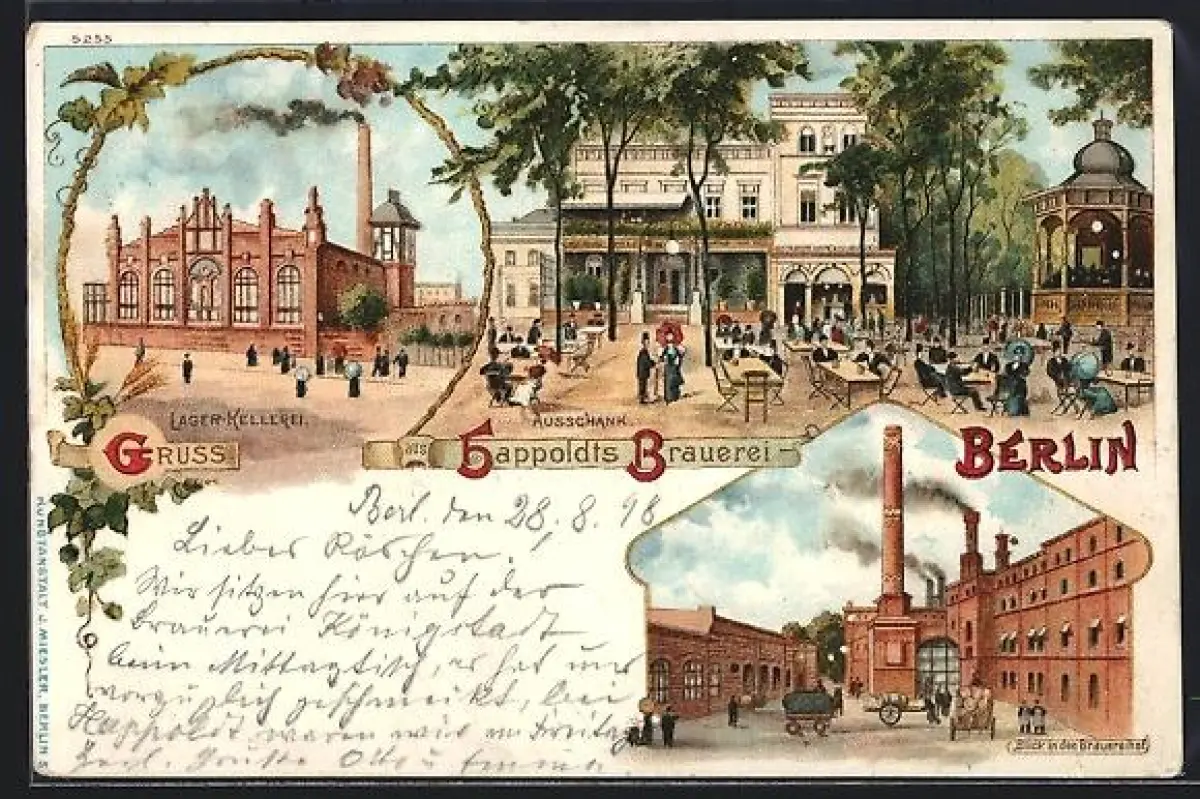 5255
LAGER-KELLEREI.
AUSSCHANK.
GRUSS aus Happoldts Brauerei - BERLIN
Berl. den 28.8.98
Liebes Röschen!
Wir sitzen hier auf der
Brauerei Königstadt
beim Mittagtisch, es hat uns
vorzüglich geschmeckt, bei
Happoldt waren wir am Freitag
Herzl. Grüße Otto u Emma.
(Blick in den Brauereihof)
KUNSTANSTALT J. MIESLER, BERLIN S